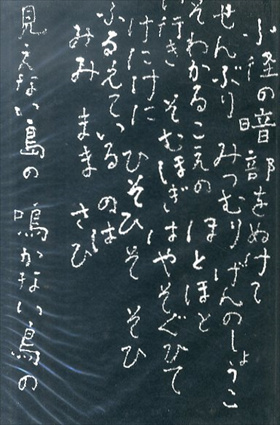 小径の暗部をぬけて
せんぶり みつむり げんのしょうこ
そわかるこえの ほとほと
い行き そむほぎはやそぐひて
けにけに ひそひそ そひ
ふるえている のは
みみ まま さび
見えない島の 鳴かない鳥の